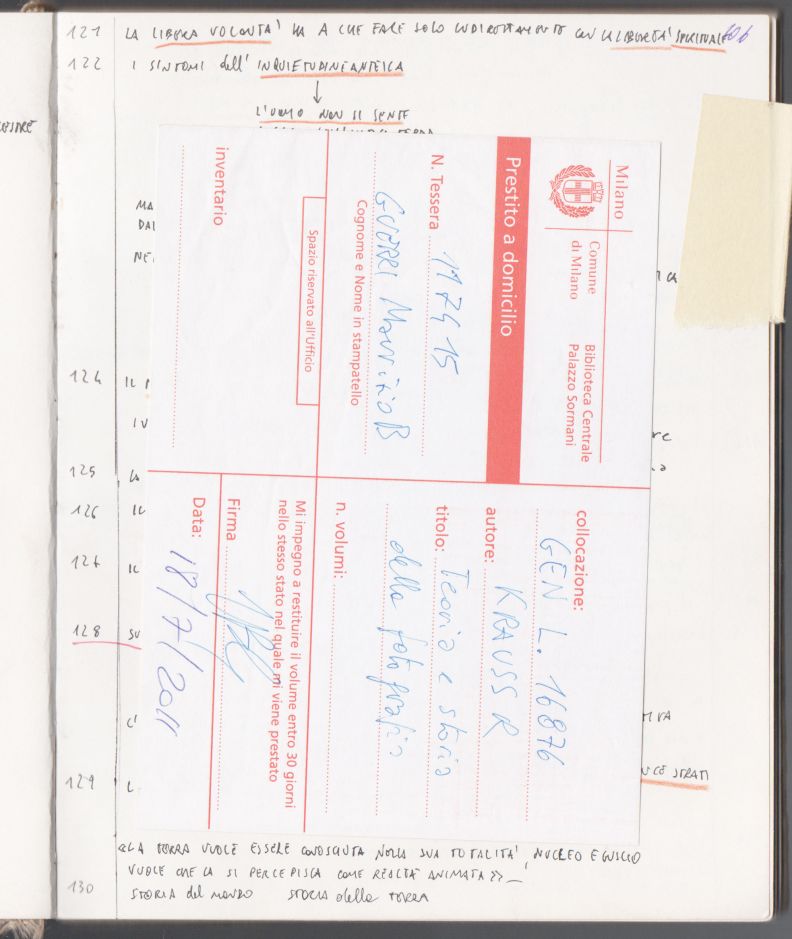 121 LA LIBERA VOLONTA' HA A CHE FARE SOLO INDIRETTAMENTE CON LA LIBERTA' SPIRITUALE 106
122 I SINTOMI dell' INQUIETUDINE ANTEICA
L'UOMO NON SI SENTE
MA
DAL
NE
124 IL
125 LA
126 IL
IL
128 SU
C'
129 L
UCE STRATI
Milano
Comune
di Milano
Biblioteca Centrale
Palazzo Sormani
Prestito a domicilio
N. Tessera 117415
GUERRI Maurizio B
Cognome e Nome in stampatello
Spazio riservato all'Ufficio
inventario
collocazione:
GEN L. 16876
autore: KRAUSS R
titolo: Teoria e storia
della fotografia
n. volumi:
Mi impegno a restituire il volume entro 30 giorni
nello stesso stato nel quale mi viene prestato
Firma
Data: 18/7/2011
«LA TERRA VUOLE ESSERE CONOSCIUTA NELLA SUA TOTALITA', NUCLEO E GUSCIO
VUOLE CHE LA SI PERCEPISCA COME REALTÀ ANIMATA»
130 STORIA del MONDO STORIA della TERRA